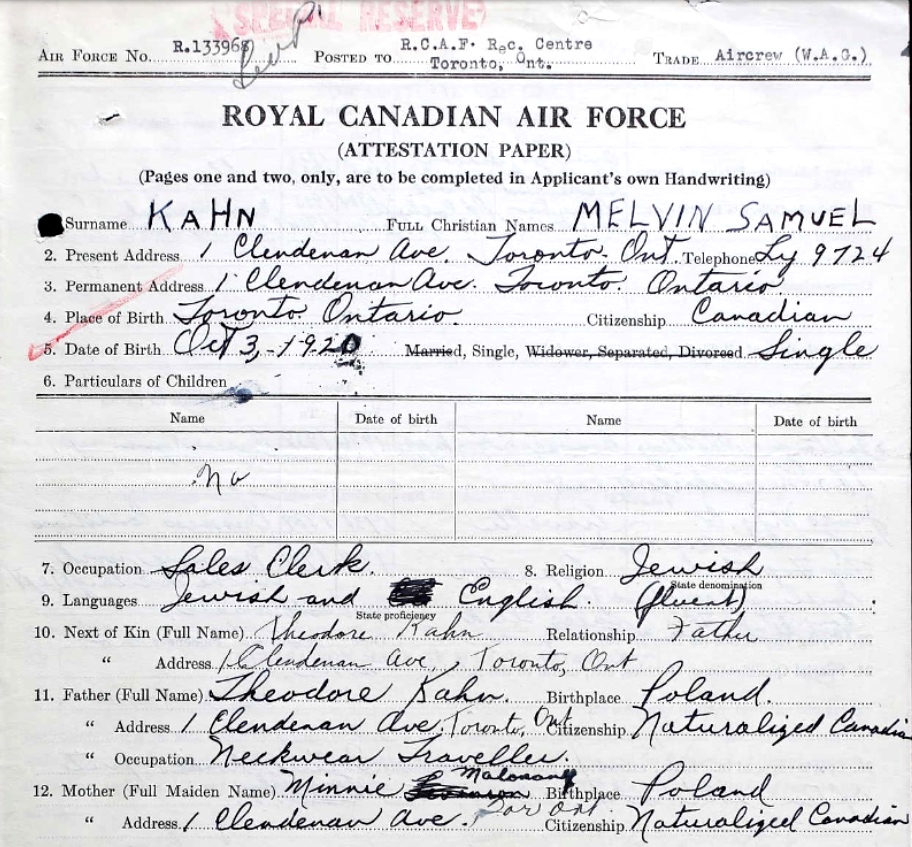 SPECIAL RESERVE
AIR FORCE No. R.133968 POSTED TO R.C.A.F. Rec. Centre Toronto, Ont. TRADE Aircrew (W.A.G.)
ROYAL CANADIAN AIR FORCE
(ATTESTATION PAPER)
(Pages one and two, only, are to be completed in Applicant's own Handwriting)
Surname KAHN FULL CHRISTIAN NAMES MELVIN SAMUEL
2. Present Address 1 Clendenan Ave. Toronto. Ont. Telephone Ly 9724
3. Permanent Address 1 Clendenan Ave. Toronto. Ontario
4. Place of Birth Toronto Ontario. Citizenship Canadian
5. Date of Birth Oct 3, -1920 Married, Single, Widower, Separated, Divorced Single
6. Particulars of Children
Name Date of birth Name Date of birth
No
7. Occupation Sales Clerk. 8. Religion Jewish
State denomination
9. Languages Jewish and English. (fluent)
State proficiency
10. Next of Kin (Full Name) Theodore Kahn Relationship Father
" Address 1 Clendenan Ave, Toronto, Ont
11. Father (Full Name) Theodore Kahn. Birthplace Poland.
" Address 1 Clendenan Ave, Toronto, Ont Citizenship Naturalized Canadian
" Occupation Neckwear Traveller.
12. Mother (Full Maiden Name) Minnie Birthplace Poland
" Address 1 Clendenan Ave. Tor Ont Citizenship Naturalized Canadian